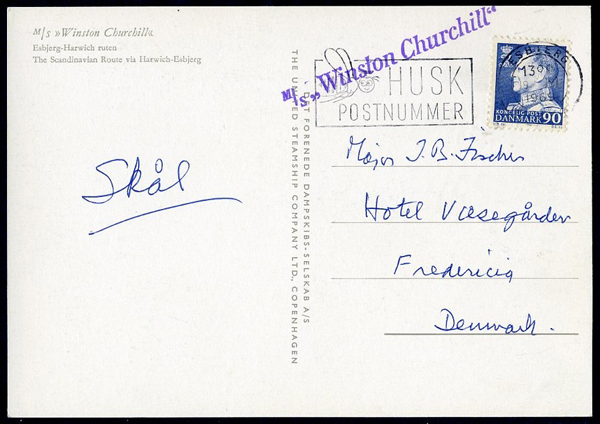 M/s »Winston Churchill«
Esbjerg-Harwich ruten
The Scandinavian Route via Harwich-Esbjerg
Skål
DET FORENEDE DAMPSKIBS-SELSKAB A/S
THE UNITED STEAMSHIP COMPANY LTD. COPENHAGEN
M/s „Winston Churchill“
HUSK
POSTNUMMER
ESBJERG
KONGELIG POST
DANMARK 90
Major I. B. Fischer
Hotel
Fredericia
Denmark.